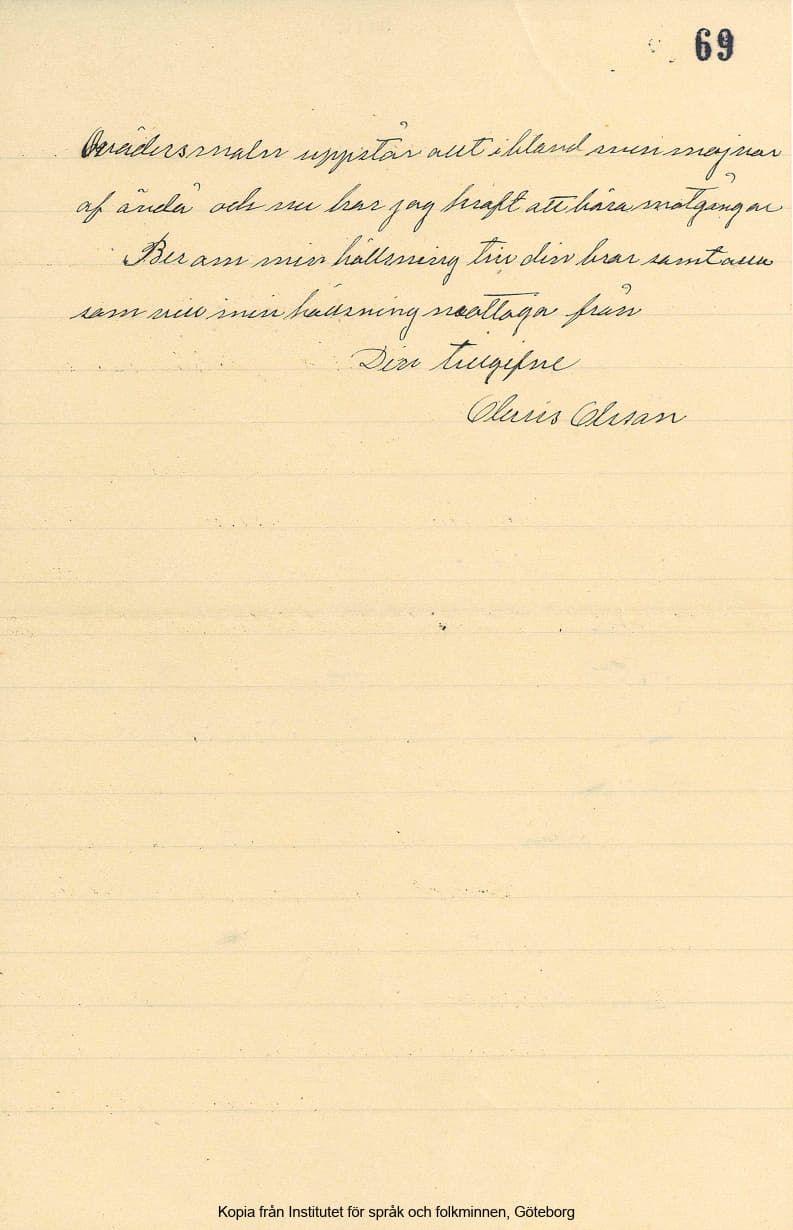 69
Ovädersmoln uppstår allt ibland men maj var
af ändå och nu har jag kraft att bära motgångar
Ber om min hällsning till din bror samt alla
som vill min hällsning mottaga från
Din tillgifne
Olsson
Kopia från Institutet för språk och folkminnen, Göteborg